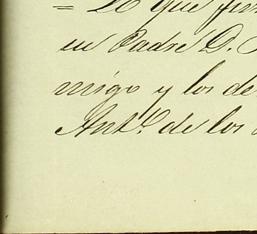 = Lo que fir
en Padre D.
migo y los de
Ant.º de los